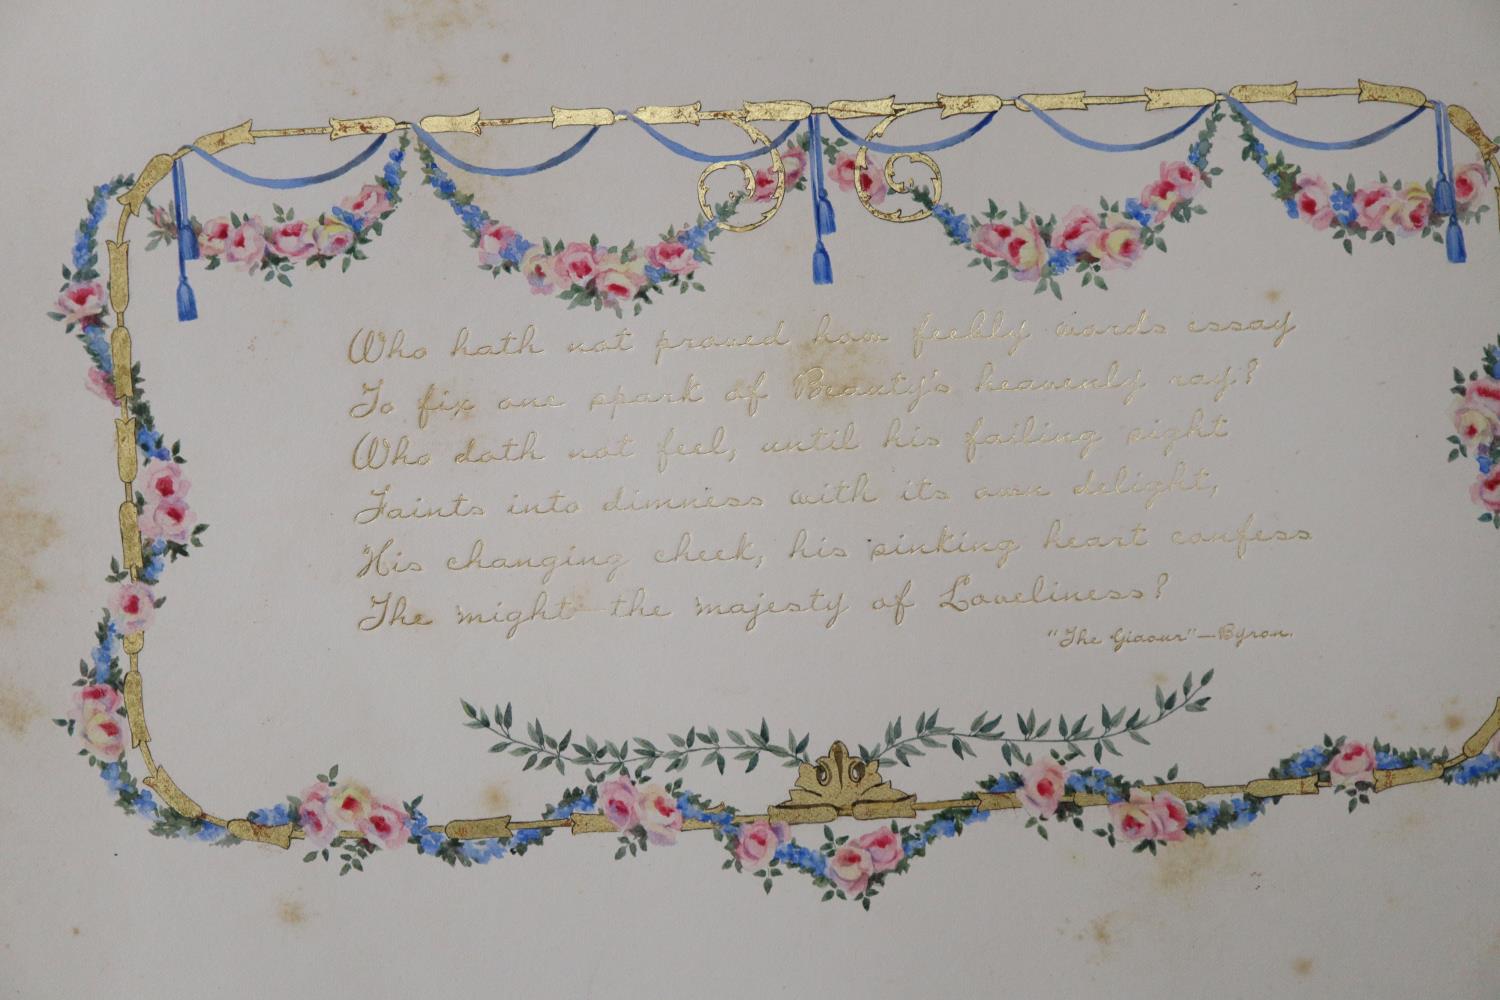 Who hath not proved how feebly words essay
To fix one spark of Beauty's heavenly ray?
Who doth not feel, until his failing sight
Faints into dimness with its own delight,
His changing cheek, his sinking heart confess
The might—the majesty of Loveliness?
"The Giaour"—Byron.